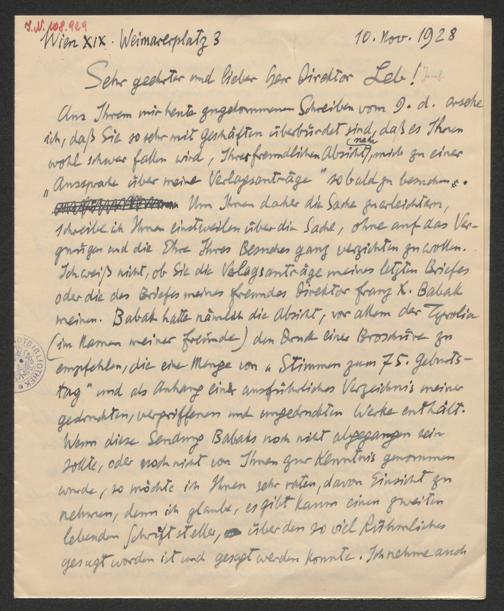 J.N. 108.929
Wien XIX. Weimarerplatz 3
10. Nov. 1928
Sehr geehrter und lieber Herr Direktor Leb!
Aus Ihrem mir heute zugekommenen Schreiben vom 9. d. ersehe
ich, daß Sie so sehr mit Geschäften überbürdet sind, daß es Ihnen
wohl schwer fallen wird, Ihrer freundlichen Absicht nach, mich zu einer
„Aussprache über meine Verlagsanträge" sobald zu besuchen.
Um Ihnen daher die Sache zu erleichtern,
schreibe ich Ihnen einstweilen über die Sache, ohne auf das Ver-
gnügen und die Ehre Ihres Besuches ganz verzichten zu wollen.
Ich weiß nicht, ob Sie die Verlagsanträge meines letzten Briefes
oder die des Briefes meines Freundes Direktor Franz X. Babak
meinen. Babak hatte nämlich die Absicht, vor allem der Tyrolia
(im Namen meiner Freunde) den Druck einer Broschüre zu
empfehlen, die eine Menge von „Stimmen zum 75. Geburts-
tag" und als Anhang ein ausführliches Verzeichnis meiner
gedruckten, vergriffenen und ungedruckten Werke enthält.
Wenn diese Sendung Babaks noch nicht abgegangen sein
sollte, oder noch nicht von Ihnen zur Kenntnis genommen
wurde, so möchte ich Ihnen sehr raten, davon Einsicht zu
nehmen, denn ich glaube, es gibt kaum einen zweiten
lebenden Schriftsteller, über den so viel Rühmliches
gesagt worden ist und gesagt werden konnte. Ich nehme auch